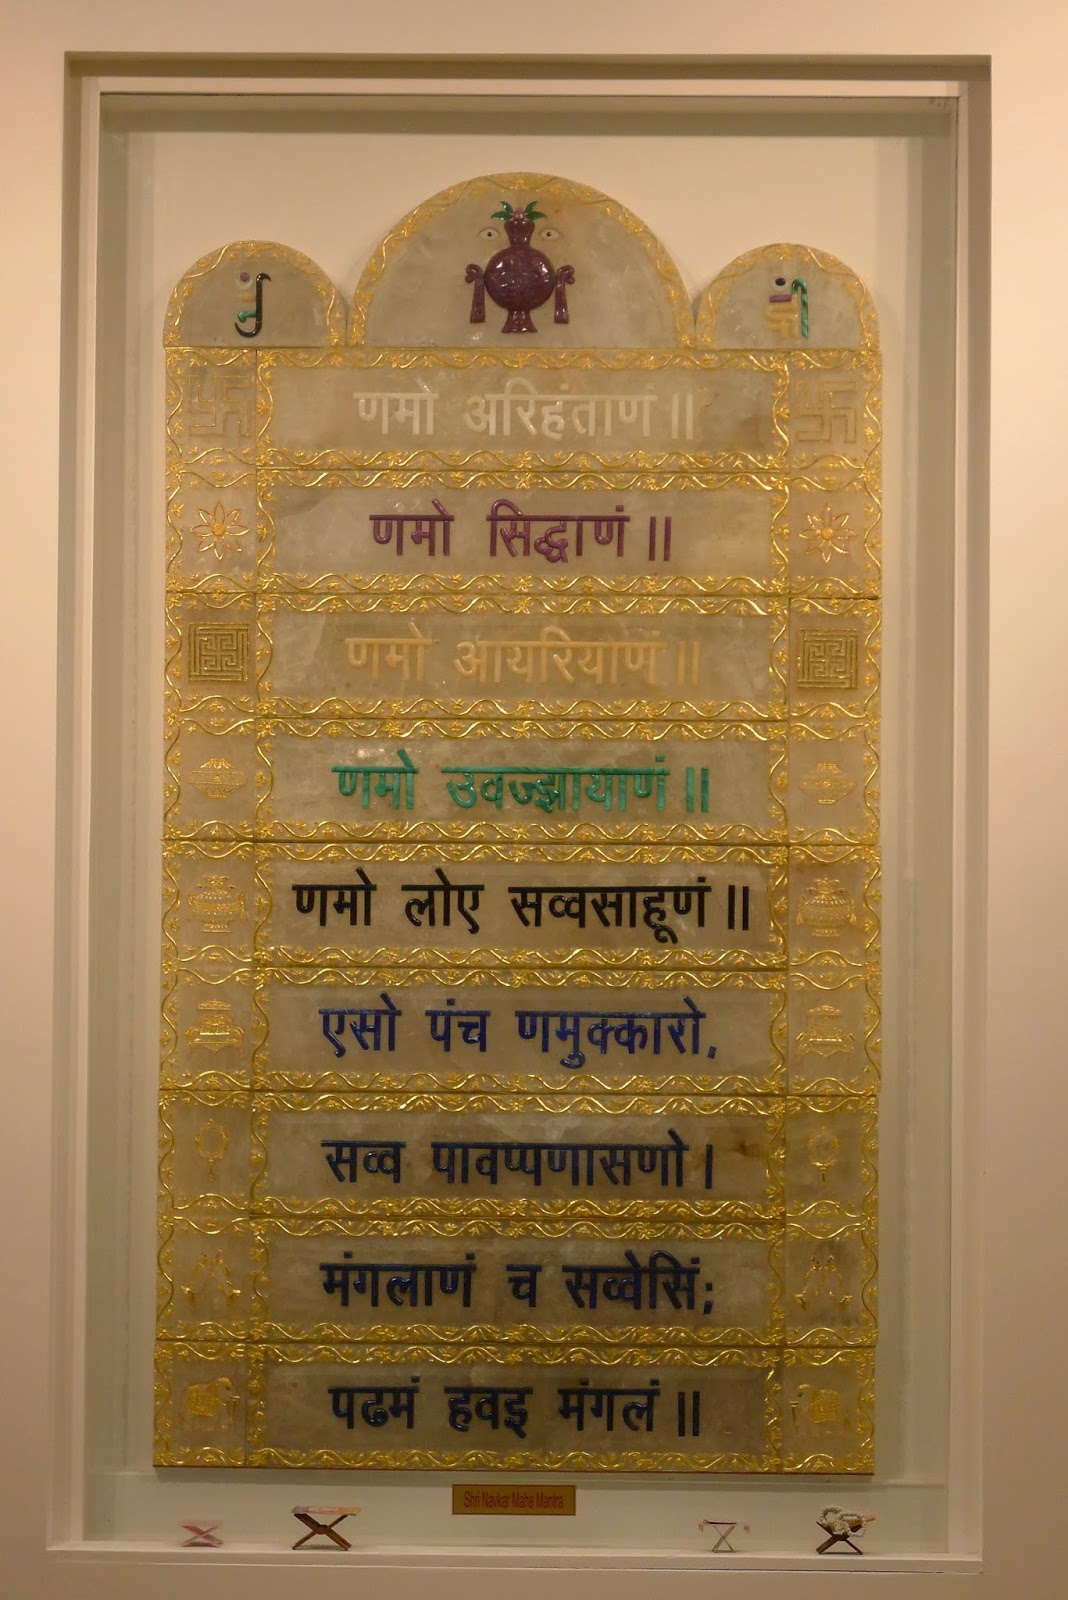 णमो अरिहंताणं ॥
णमो सिद्धाणं ॥
णमो आयरियाणं ॥
णमो उवज्झायाणं ॥
णमो लोए सव्वसाहूणं ॥
एसो पंच णमुक्कारो,
सव्व पावप्पणासणो ।
मंगलाणं च सव्वेसिं;
पढमं हवइ मंगलं ॥
Shri Navkar Maha Mantra